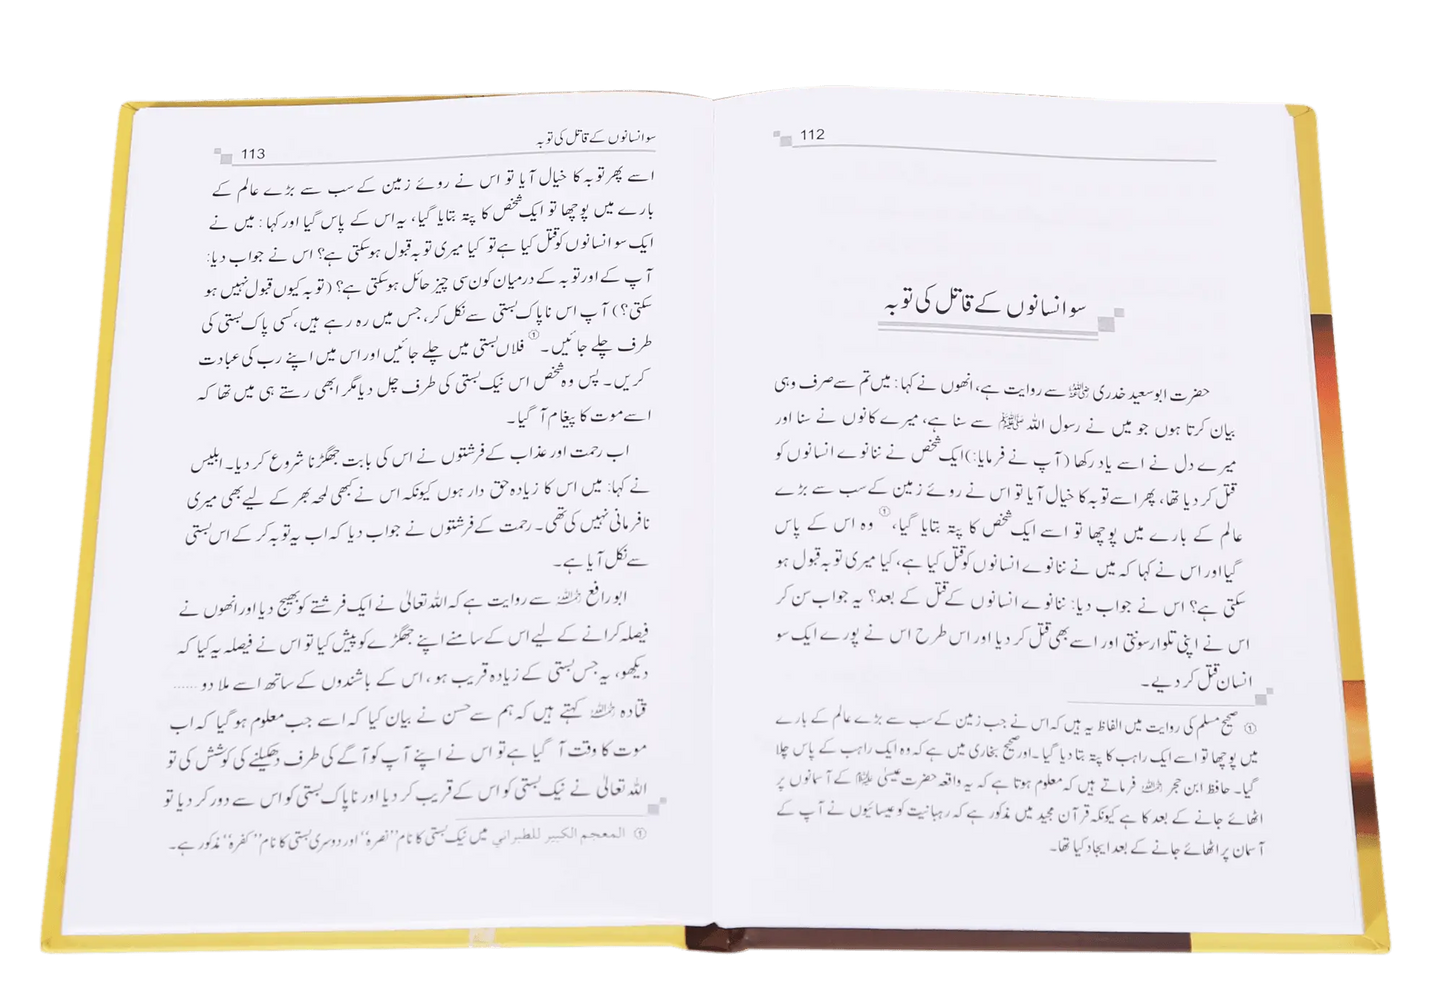 112
سو انسانوں کے قاتل کی توبہ
حضرت ابوسعید خدری رضی اللہ عنہ سے روایت ہے، انھوں نے کہا: میں تم سے صرف وہی
بیان کرتا ہوں جو میں نے رسول اللہ ﷺ سے سنا ہے، میرے کانوں نے سنا اور
میرے دل نے اسے یاد رکھا (آپ نے فرمایا:) ایک شخص نے ننانوے انسانوں کو
قتل کر دیا تھا، پھر اسے توبہ کا خیال آیا تو اس نے روئے زمین کے سب سے بڑے
عالم کے بارے میں پوچھا تو اسے ایک شخص کا پتہ بتایا گیا،① وہ اس کے پاس
گیا اور اس نے کہا کہ میں نے ننانوے انسانوں کو قتل کیا ہے، کیا میری توبہ قبول ہو
سکتی ہے؟ اس نے جواب دیا: ننانوے انسانوں کے قتل کے بعد؟ یہ جواب سن کر
اس نے اپنی تلوار سونتی اور اسے بھی قتل کر دیا اور اس طرح اس نے پورے ایک سو
انسان قتل کر دیے۔
① صحیح مسلم کی روایت میں الفاظ یہ ہیں کہ اس نے جب زمین کے سب سے بڑے عالم کے بارے
میں پوچھا تو اسے ایک راہب کا پتہ بتا دیا گیا۔ اور صحیح بخاری میں ہے کہ وہ ایک راہب کے پاس چلا
گیا۔ حافظ ابن حجر رحمہ اللہ فرماتے ہیں کہ معلوم ہوتا ہے کہ یہ واقعہ حضرت عیسیٰ علیہ السلام کے آسمانوں پر
اٹھائے جانے کے بعد کا ہے کیونکہ قرآن مجید میں مذکور ہے کہ رہبانیت کو عیسائیوں نے آپ کے
آسمان پر اٹھائے جانے کے بعد ایجاد کیا تھا۔
سو انسانوں کے قاتل کی توبہ
113
اسے پھر توبہ کا خیال آیا تو اس نے روئے زمین کے سب سے بڑے عالم کے
بارے میں پوچھا تو ایک شخص کا پتہ بتایا گیا، یہ اس کے پاس گیا اور کہا: میں نے
ایک سو انسانوں کو قتل کیا ہے تو کیا میری توبہ قبول ہو سکتی ہے؟ اس نے جواب دیا:
آپ کے اور توبہ کے درمیان کون سی چیز حائل ہو سکتی ہے؟ (توبہ کیوں قبول نہیں ہو
سکتی؟) آپ اس ناپاک بستی سے نکل کر، جس میں رہ رہے ہیں، کسی پاک بستی کی
طرف چلے جائیں۔① فلاں بستی میں چلے جائیں اور اس میں اپنے رب کی عبادت
کریں۔ پس وہ شخص اس نیک بستی کی طرف چل دیا مگر ابھی رستے ہی میں تھا کہ
اسے موت کا پیغام آ گیا۔
اب رحمت اور عذاب کے فرشتوں نے اس کی بابت جھگڑنا شروع کر دیا۔ ابلیس
نے کہا: میں اس کا زیادہ حق دار ہوں کیونکہ اس نے کبھی لمحہ بھر کے لیے بھی میری
نافرمانی نہیں کی تھی۔ رحمت کے فرشتوں نے جواب دیا کہ اب یہ توبہ کر کے اس بستی
سے نکل آیا ہے۔
ابو رافع رحمہ اللہ سے روایت ہے کہ اللہ تعالیٰ نے ایک فرشتے کو بھیج دیا اور انھوں نے
فیصلہ کرانے کے لیے اس کے سامنے اپنے جھگڑے کو پیش کیا تو اس نے فیصلہ یہ کیا کہ
دیکھو، یہ جس بستی کے زیادہ قریب ہو، اس کے باشندوں کے ساتھ اسے ملا دو ......
قتادہ رحمہ اللہ کہتے ہیں کہ ہم سے حسن نے بیان کیا کہ اسے جب معلوم ہو گیا کہ اب
موت کا وقت آ گیا ہے تو اس نے اپنے آپ کو آگے کی طرف دھکیلنے کی کوشش کی تو
اللہ تعالیٰ نے نیک بستی کو اس کے قریب کر دیا اور ناپاک بستی کو اس سے دور کر دیا تو
① المعجم الكبير للطبراني میں نیک بستی کا نام ”نصرہ“ اور دوسری بستی کا نام ”کفرہ“ مذکور ہے۔